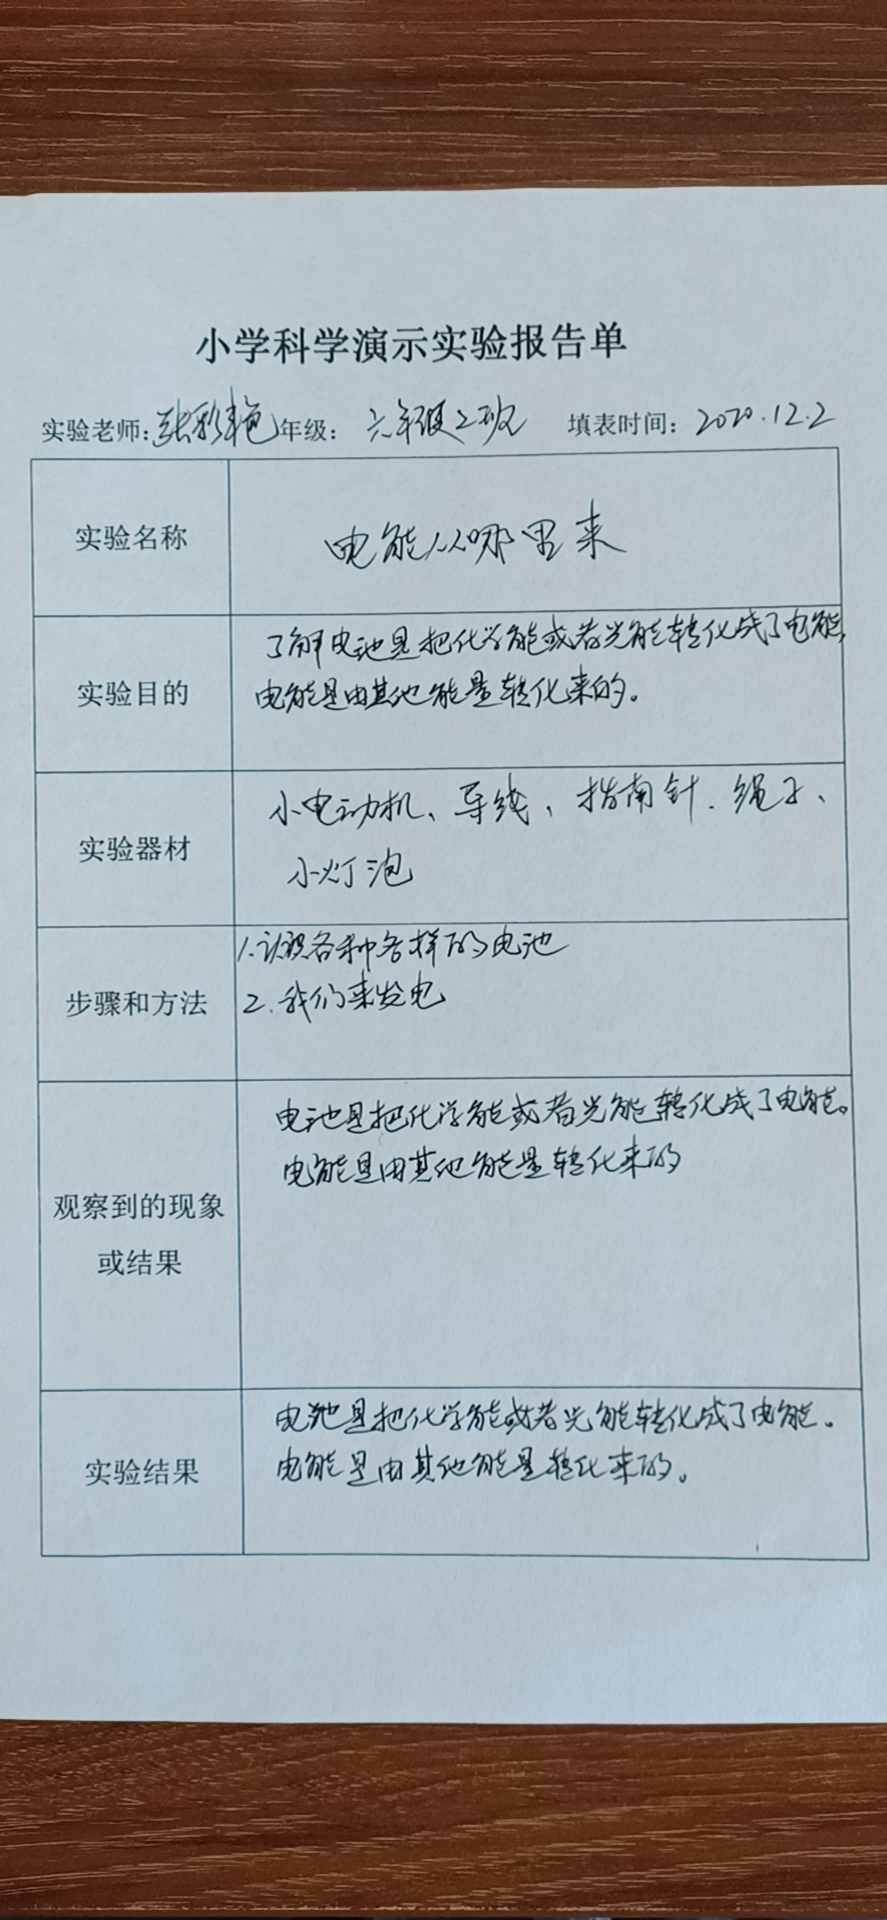 小学科学演示实验报告单
实验老师:张彩艳 年级: 六年级2班 填表时间: 2020.12.2
实验名称
电能从哪里来
了解电池是把化学能或者光能转化成了电能,
实验目的
电能是由其他能量转化来的。
小电动机、导线、指南针、绳子、
实验器材
小灯泡
1.认识各种各样的电池
步骤和方法
2.我们来发电
电池是把化学能或者光能转化成了电能。
电能是由其他能量转化来的
观察到的现象
或结果
电池是把化学能或者光能转化成了电能.
实验结果
电能是由其他能量转化来的。